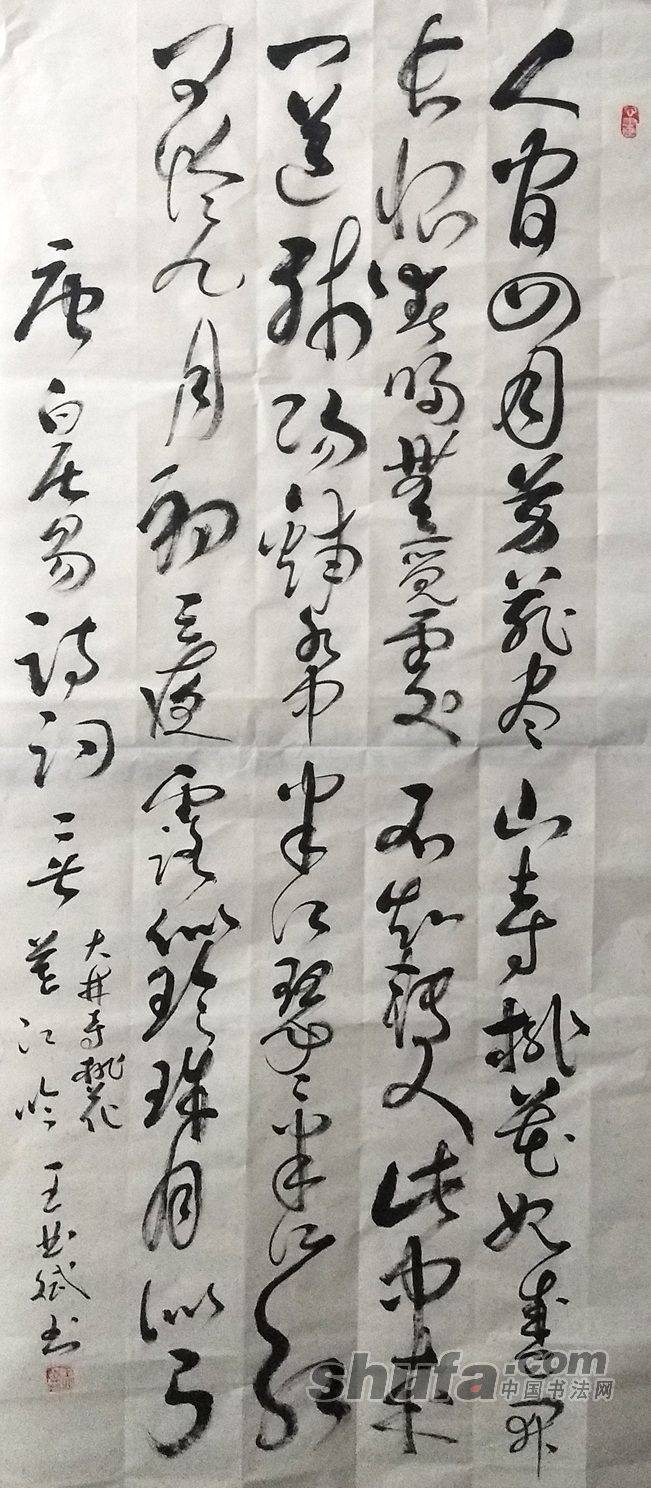 人間四月芳菲尽山寺桃花始盛開
长恨春歸無覓處不知轉入此中来
一道残陽鋪水中半江瑟々半江红
可怜九月初三夜露似珍珠月似弓
唐白居易詩詞二首
大林寺桃花
暮江吟
王斌书
shufa.com
中国书法网